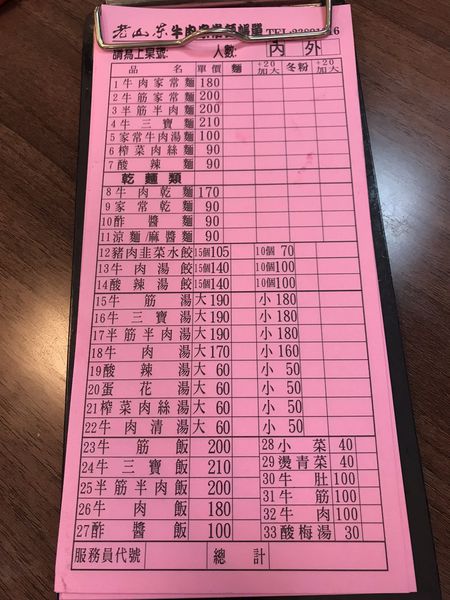 老山東牛肉家常麵
請寫上桌號: 人數: 內 外
品名 單價 麵 +20加大 冬粉 +20加大
1 牛肉家常麵 180
2 牛筋家常麵 200
3 半筋半肉麵 200
4 牛三寶麵 210
5 家常牛肉湯麵 100
6 榨菜肉絲麵 90
7 酸辣麵 90
乾麵類
8 牛肉乾麵 170
9 家常乾麵 90
10 酢醬麵 90
11 涼麵/麻醬麵 90
12 豬肉韭菜水餃 15個 105 10個 70
13 牛肉湯餃 15個 140 10個 100
14 酸辣湯餃 15個 140 10個 100
15 牛筋湯 大 190 小 180
16 牛三寶湯 大 190 小 180
17 半筋半肉湯 大 190 小 180
18 牛肉湯 大 170 小 160
19 酸辣湯 大 60 小 50
20 蛋花湯 大 60 小 50
21 榨菜肉絲湯 大 60 小 50
22 牛肉清湯 大 60 小 50
23 牛筋飯 200 28 小菜 40
24 牛三寶飯 210 29 燙青菜 40
25 半筋半肉飯 200 30 牛肚 100
26 牛肉飯 180 31 牛筋 100
27 酢醬飯 100 32 牛肉 100
33 酸梅湯 30
服務員代號 總計